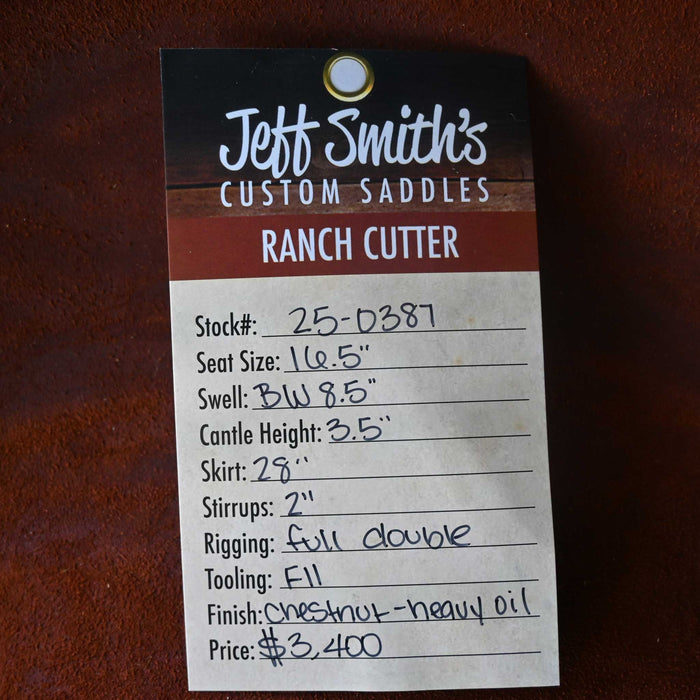 Jeff Smith's
CUSTOM SADDLES
RANCH CUTTER
Stock#: 25-0387
Seat Size: 16.5"
Swell: BW 8.5"
Cantle Height: 3.5"
Skirt: 28"
Stirrups: 2"
Rigging: full double
Tooling: F11
Finish: chestnut-heavy oil
Price: $3,400